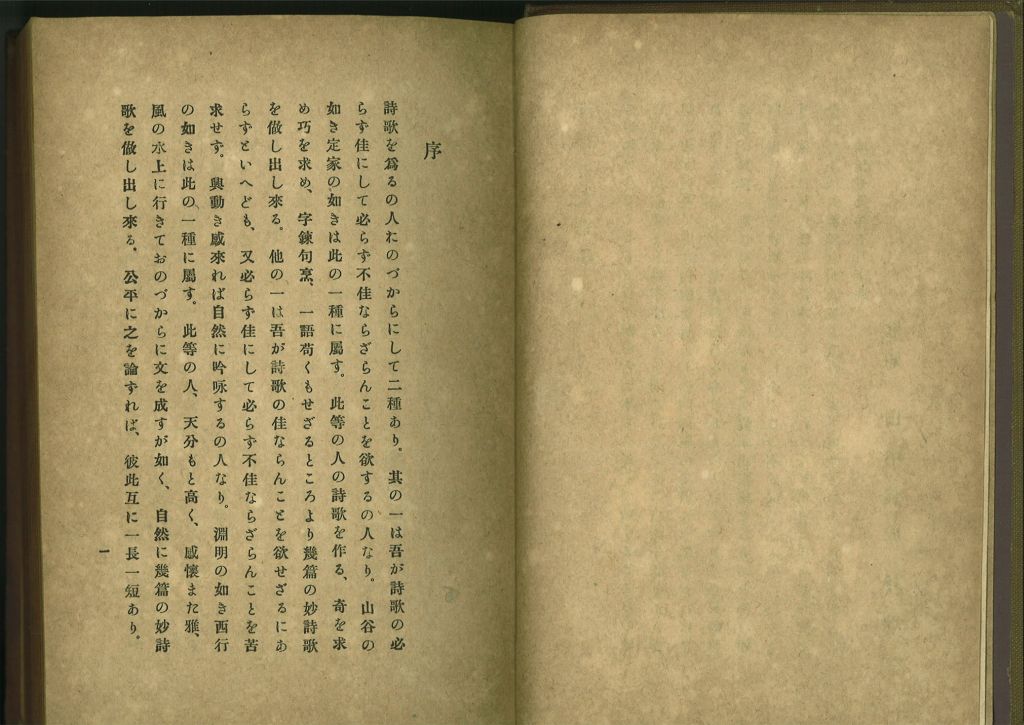 序
詩歌を爲るの人おのづからにして二種あり。其の一は吾が詩歌の必
らず佳にして必らず不佳ならざらんことを欲するの人なり。山谷の
如き定家の如きは此の一種に屬す。此等の人の詩歌を作る、奇を求
め巧を求め、字鍊句烹、一語苟くもせざるところより幾篇の妙詩歌
を做し出し來る。他の一は吾が詩歌の佳ならんことを欲せざるにあ
らずといへども、又必らず佳にして必らず不佳ならざらんことを苦
求せず。興動き感來れば自然に吟咏するの人なり。淵明の如き西行
の如きは此の一種に屬す。此等の人、天分もと高く、感懷また雅、
風の水上に行きておのづからに文を成すが如く、自然に幾篇の妙詩
歌を做し出し來る、公平に之を論ずれば、彼此互に一長一短あり。
一